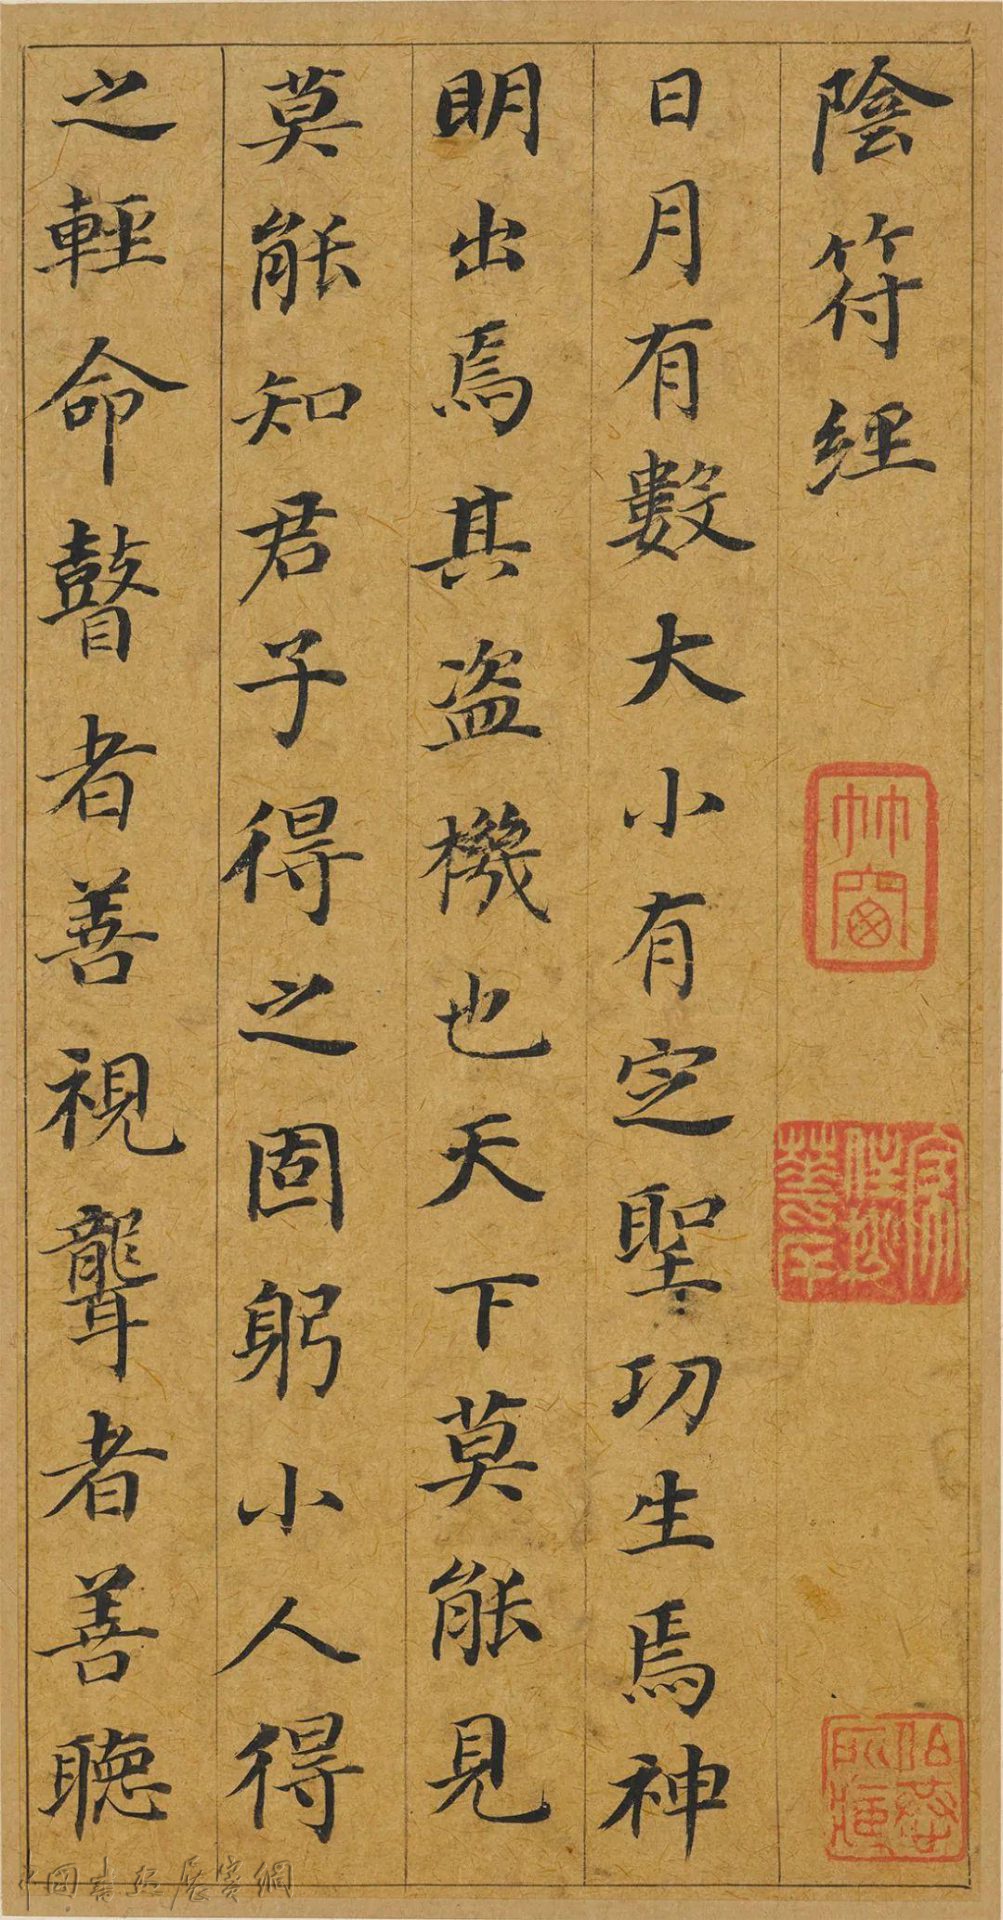 陰符経
日月有數大小有定聖功生焉神
明出焉其盗機也天下莫能見
莫能知君子得之固躬小人得
之輕命瞽者善視聾者善聴
竹窗
中国書法展賽網